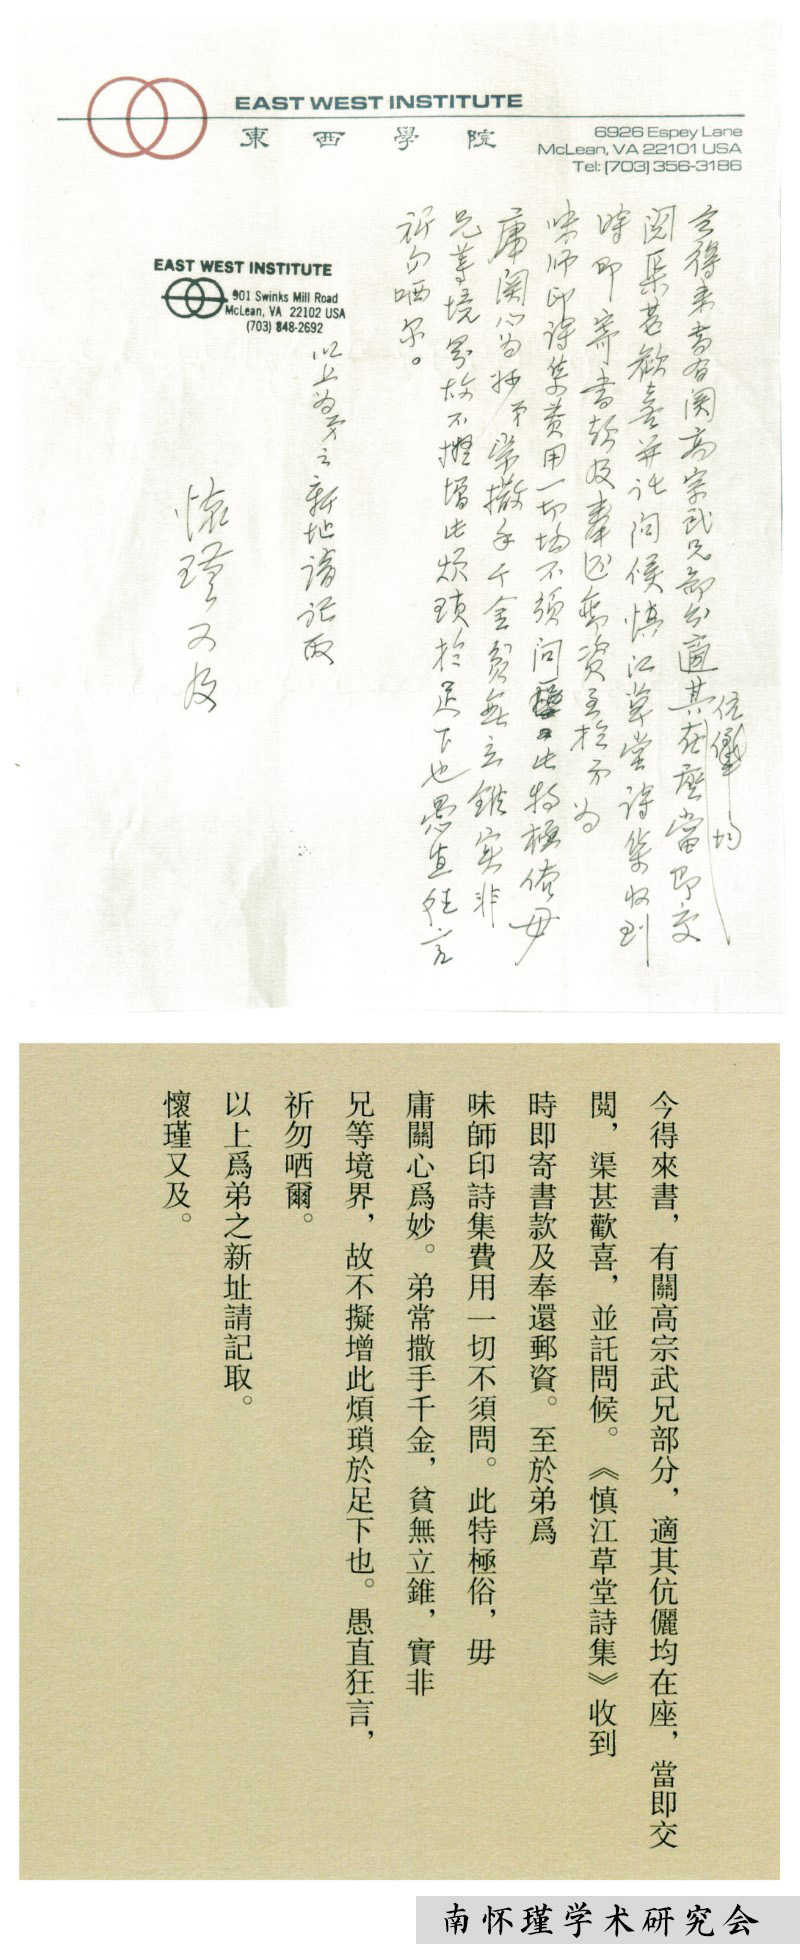 EAST WEST INSTITUTE
東西學院
6926 Espey Lane
McLean, VA 22101 USA
Tel: (703) 356-3186
今得来書有関高宗武兄部分適其伉儷均在座當即交
閱渠甚歡喜並託问候慎江草堂詩集收到
時即寄書款及奉还郵資至於弟为
味师印詩集費用一切均不須问此特極俗毋
庸関心为妙弟常撒手千金貧無立錐实非
兄等境界故不擬增此烦瑣於足下也愚直狂言
祈勿哂尔。
EAST WEST INSTITUTE
901 Swinks Mill Road
McLean, VA 22102 USA
(703) 848-2692
以上为弟之新址請记取
懷瑾又及
今得來書，有關高宗武兄部分，適其伉儷均在座，當即交
閲，渠甚歡喜，並託問候。《慎江草堂詩集》收到
時即寄書款及奉還郵資。至於弟爲
味師印詩集費用一切不須問。此特極俗，毋
庸關心爲妙。弟常撒手千金，貧無立錐，實非
兄等境界，故不擬增此煩瑣於足下也。愚直狂言，
祈勿哂爾。
以上爲弟之新址請記取。
懷瑾又及。
南怀瑾学术研究会